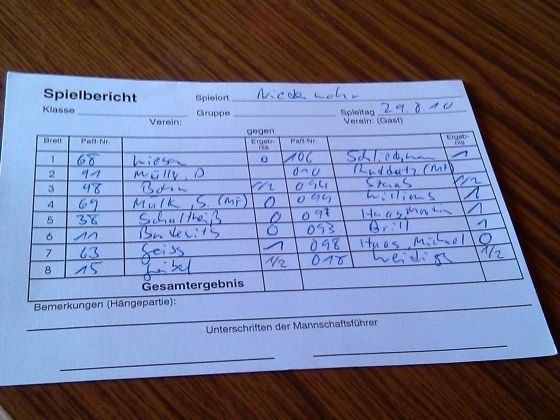 Spielbericht Spielort
Klasse Gruppe Spieltag 29.8.10
Verein: Verein: (Gast)
gegen
Brett Paß-Nr. Ergeb-nis Paß-Nr. Ergeb-nis
1 68 0 106 1
2 91 Müller, D 010
3 48 Bohn 1/2 094 1/2
4 69 Mulk, S. (MF) 0 099 Williams 1
5 38 Schultheiß 0 097 Haasmann 1
6 11 0 093 Brill 1
7 63 Geiss 1 098 Haas, Michael 0
8 15 Göbel 1/2 018 Weidig 1/2
Gesamtergebnis
Bemerkungen (Hängepartie):
Unterschriften der Mannschaftsführer